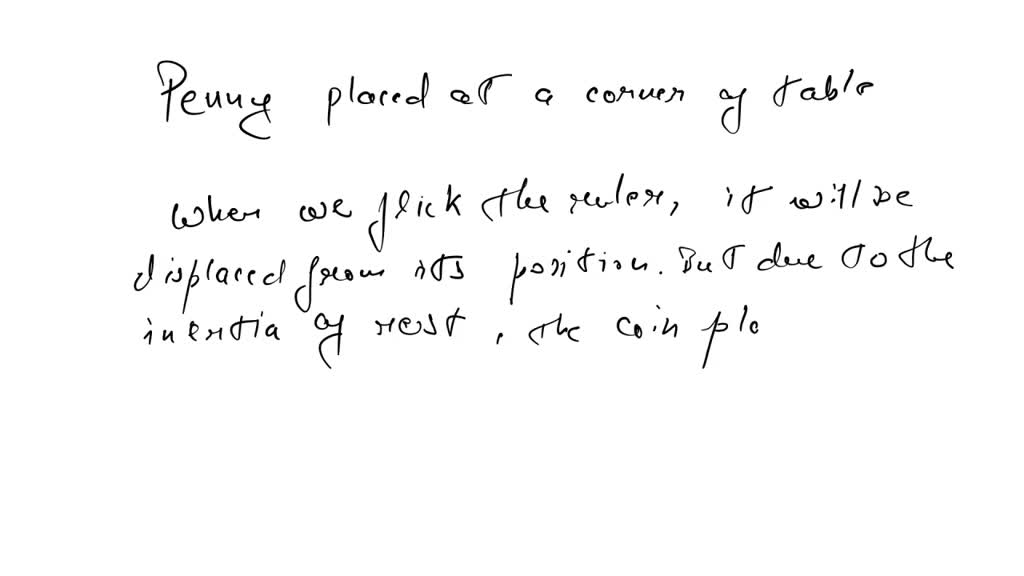 Penny placed at a corner of table
When we flick the ruler, it will be
displaced from its position. But due to the
inertia of rest, the coin pla